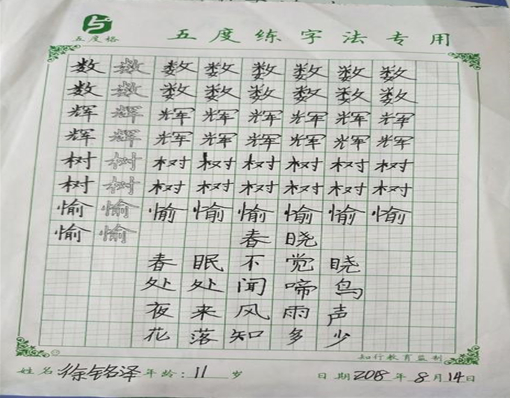 五度格
五度练字法专用
数数数数数数数数
数数数数数数数
辉辉辉辉辉辉辉辉
辉辉辉辉辉辉辉辉
树树树树树树树树
树树树树树树树树
愉愉愉愉愉愉愉愉
愉愉
春晓
春眠不觉晓
处处闻啼鸟
夜来风雨声
花落知多少
知行教育监制
姓名 徐铭泽 年龄: 11 岁 日期 2018 年 8 月 14 日